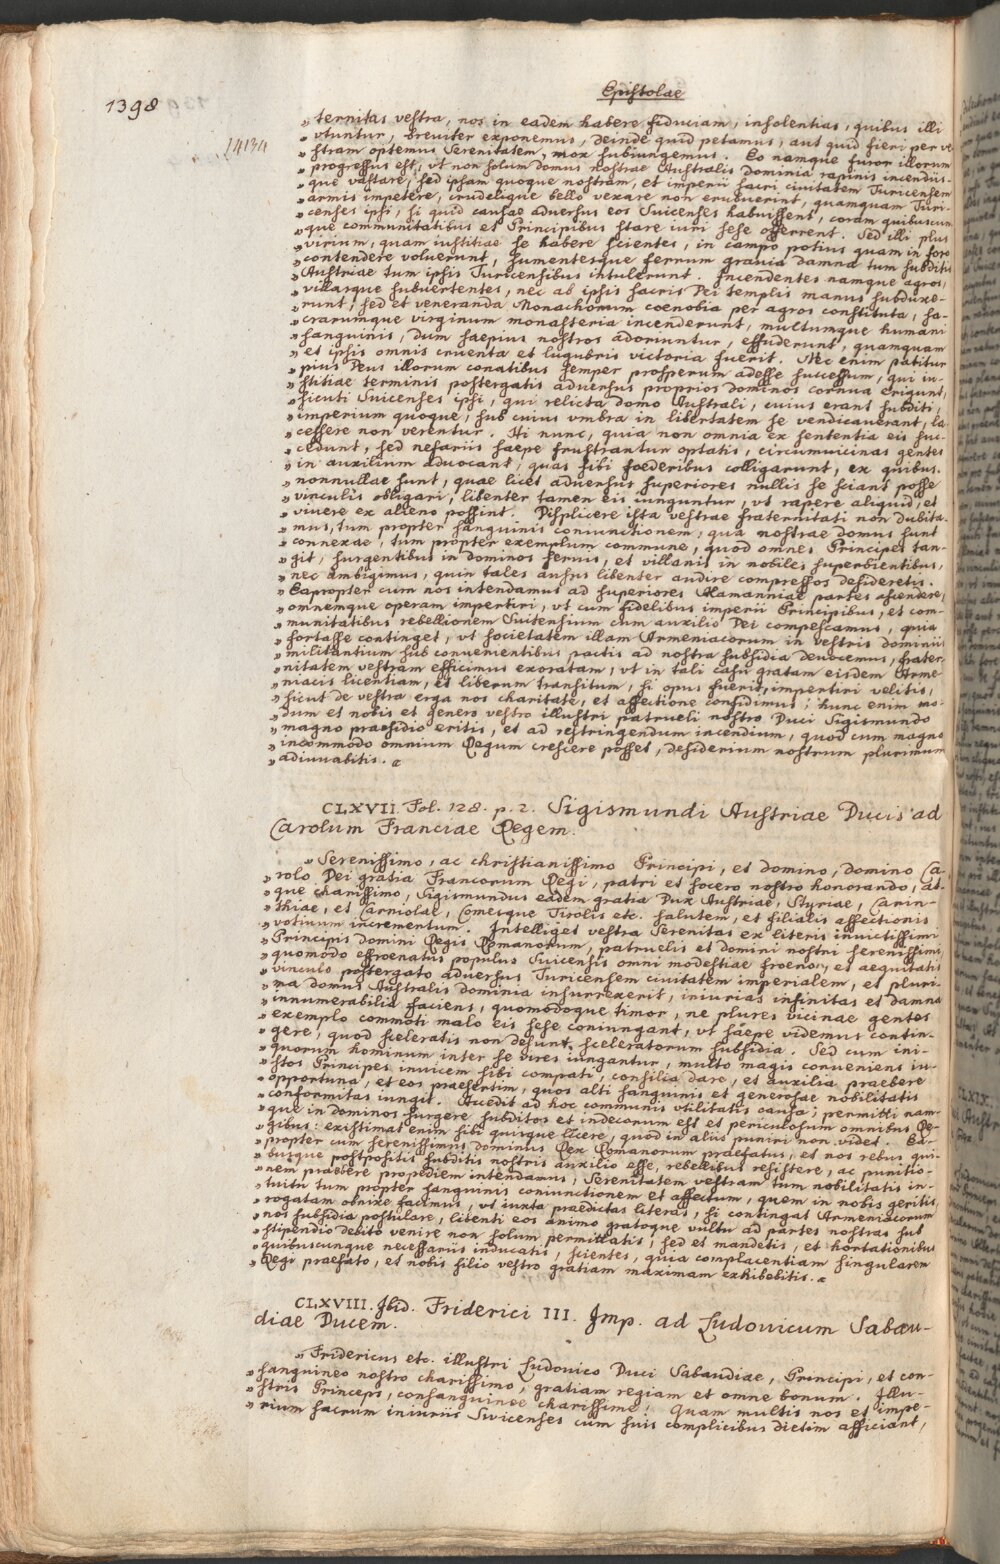 1398
Epistolae
„ ternitas vestra, nos in eadem habere fiduciam, insolentias, quibus illi
„ vtuntur, breuiter exponemus, deinde quid petamus, aut quid fieri per ve
„ stram optemus Serenitatem, mox subiungemus. Eo namque furor illorum
„ progressus est, vt non solum domus nostrae Australis dominia rapinis incendiis-
„ que vastare, sed ipsam quoque nostram, et imperii sacri ciuitatem Turicensem
„ armis impetere, crudelique bello vexare non erubuerint, quamquam Turi-
„ censes ipsi, si quid causae aduersus eos Suicenses habuissent, coram quibuscun
„ que communitatibus et Principibus stare iuri sese offerrent. Sed illi plus
„ virium, quam iustitiae se habere scientes, in campo potius quam in foro
„ contendere voluerunt, sumentesque ferrum grauia damna tum subditis
„ Austriae tum ipsis Turicensibus intulerunt. Incendentes namque agros,
„ villasque subuertentes, nec ab ipsis sacris Dei templis manus subduxe-
„ runt, sed et veneranda Monachorum coenobia per agros constituta, sa-
„ crarumque virginum monasteria incenderunt, multumque humani
„ sanguinis, dum saepius nostros adoriuntur, effuderunt, quamquam
„ et ipsis omnis cruenta et lugubris victoria fuerit. Nec enim patitur
„ pius Deus illorum conatibus semper prosperum adesse successum, qui iu-
„ stitiae terminis postergatis aduersus proprios dominos cornua erigunt,
„ sicuti Suicenses ipsi, qui relicta domo Australi, cuius erant subditi,
„ imperium quoque, sub cuius vmbra in libertatem se vendicauerant, la
„ cessere non verentur. Hi nunc, quia non omnia ex sententia eis suc-
„ cedunt, sed nefariis saepe frustrantur optatis, circumuicinas gentes
„ in auxilium aduocant, quas sibi foederibus colligarunt, ex quibus.
„ nonnullae sunt, quae licet aduersus superiores nullis se sciant posse
„ vinculis obligari, libenter tamen eis iunguntur, vt rapere aliquid, et
„ viuere ex alieno possint. Displicere ista vestrae fraternitati non dubita-
„ mus, tum propter sanguinis coniunctionem, qua nostrae domus sunt
„ connexae, tum propter exemplum commune, quod omnes Principes tan-
„ git, surgentibus in dominos seruis, et villanis in nobiles superbientibus,
„ nec ambigimus, quin tales ausus libenter audire compressos desideretis.
„ Eapropter cum nos intendamus ad superiores Alamanniae partes ascendere,
„ omnemque operam impertiri, vt cum fidelibus imperii Principibus, et com-
„ munitatibus rebellionem Suitensium cum auxilio Dei compescamus, quia
„ fortasse continget, vt societatem illam Armeniacorum in vestris dominiis
„ militantium sub conuenientibus pactis ad nostra subsidia deuocemus, frater-
„ nitatem vestram efficimus exoratam, vt in tali casu gratam eisdem Arme-
„ niacis licentiam, et liberum transitum, si opus fuerit, impertiri velitis,
„ sicut de vestra erga nos charitate, et affectione confidimus; hunc enim mo-
„ dum et nobis et genero vestro illustri patrueli nostro Duci Sigismundo
„ magno praesidio eritis, et ad restringendum incendium, quod cum magno
„ incommodo omnium Regum crescere posset, desiderium nostrum plurimum
„ adiuuabitis.
CLXVII. Fol. 128. p. 2. Sigismundi Austriae Ducis ad
Carolum Franciae Regem.
„ Serenissimo, ac christianissimo Principi, et domino, domino Ca-
„ rolo Dei gratia Francorum Regi, patri et socero nostro honorando, at-
„ que charissimo, Sigismundus eadem gratia Dux Austriae, Styriae, Carin-
„ thiae, et Carniolae, Comesque Tirolis etc. salutem, et filialis affectionis
„ votiuum incrementum. Intelliget vestra Serenitas ex literis inuictissimi
„ Principis domini Regis Romanorum, patruelis et domini nostri serenissimi,
„ quomodo effroenatus populus Suicensis omni modestiae froeno, et aequitatis
„ vinculo postergato aduersus Turicensem ciuitatem imperialem, et pluri-
„ ma domus Australis dominia insurrexerit, iniurias infinitas et damna
„ innumerabilia faciens, quomodoque timor, ne plures vicinae gentes
„ exemplo commoti malo eis sese coniungant, vt saepe videmus contin-
„ gere, quod sceleratis non desunt sceleratorum subsidia. Sed cum ini-
„ quorum hominum inter se vires iungantur, multo magis conueniens iu-
„ stos Principes inuicem sibi compati, consilia dare, et auxilia praebere
„ opportuna, et eos praesertim, quos alti sanguinis et generosae nobilitatis
„ conformitas iungit. Accedit ad hoc communis vtilitatis causa; permitti nam-
„ que in dominos surgere subditos et indecorum est et periculosum omnibus Re-
„ gibus: existimat enim sibi quisque licere, quod in aliis puniri non videt. Ea-
„ propter cum serenissimus dominus Rex Romanorum praefatus, et nos rebus qui-
„ busque postpositis subditis nostris auxilio esse, rebellibus resistere, ac punitio-
„ nem praebere propediem intendamus, Serenitatem vestram tum nobilitatis in-
„ tuitu tum propter sanguinis coniunctionem et affectum, quem in nobis geritis,
„ rogatam obnixe facimus, vt iuxta praedictas literas, si contingat Armeniacorum
„ nos subsidia postulare, libenti eos animo gratoque vultu ad partes nostras sub
„ stipendio debito venire non solum permittatis, sed et mandetis, et hortationibus
„ quibuscunque necessariis inducatis, scientes, quia complacentiam singularem
„ Regi praefato, et nobis filio vestro gratiam maximam exhibebitis.
CLXVIII. Ibid. Friderici III. Imp. ad Ludouicum Sabau-
diae Ducem.
„ Fridericus etc. illustri Ludouico Duci Sabaudiae, Principi, et con-
„ sanguineo nostro charissimo, gratiam regiam et omne bonum. Illu-
„ stris Princeps, consanguinee charissime! Quam multis nos et impe-
„ rium sacrum iniuriis Swicenses cum suis complicibus dietim afficiant,